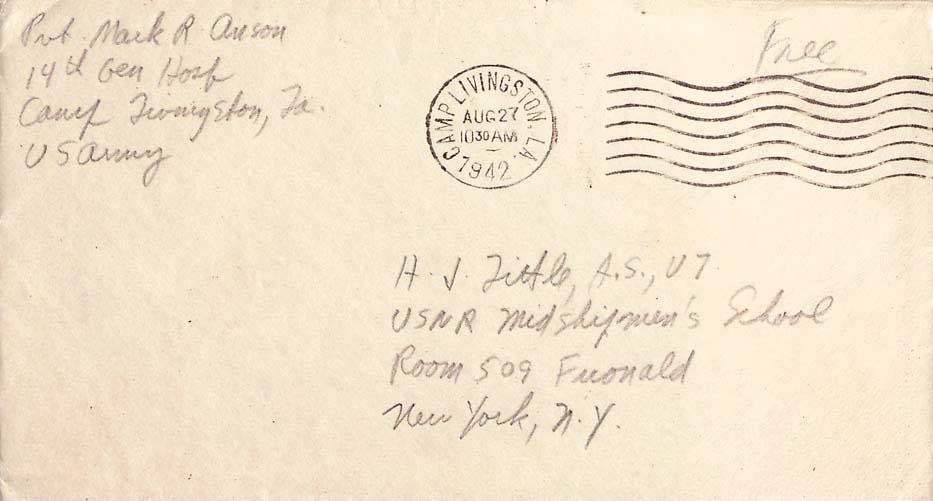 Pvt. Mark R Anson
14th Gen Hosp
Camp Livingston, La.
US Army
Free
CAMP LIVINGSTON, LA.
AUG 27
1030 AM
1942
H. J. Tittle, A.S., V7
USNR Midshipmen's School
Room 509 Furnald
New York, N.Y.